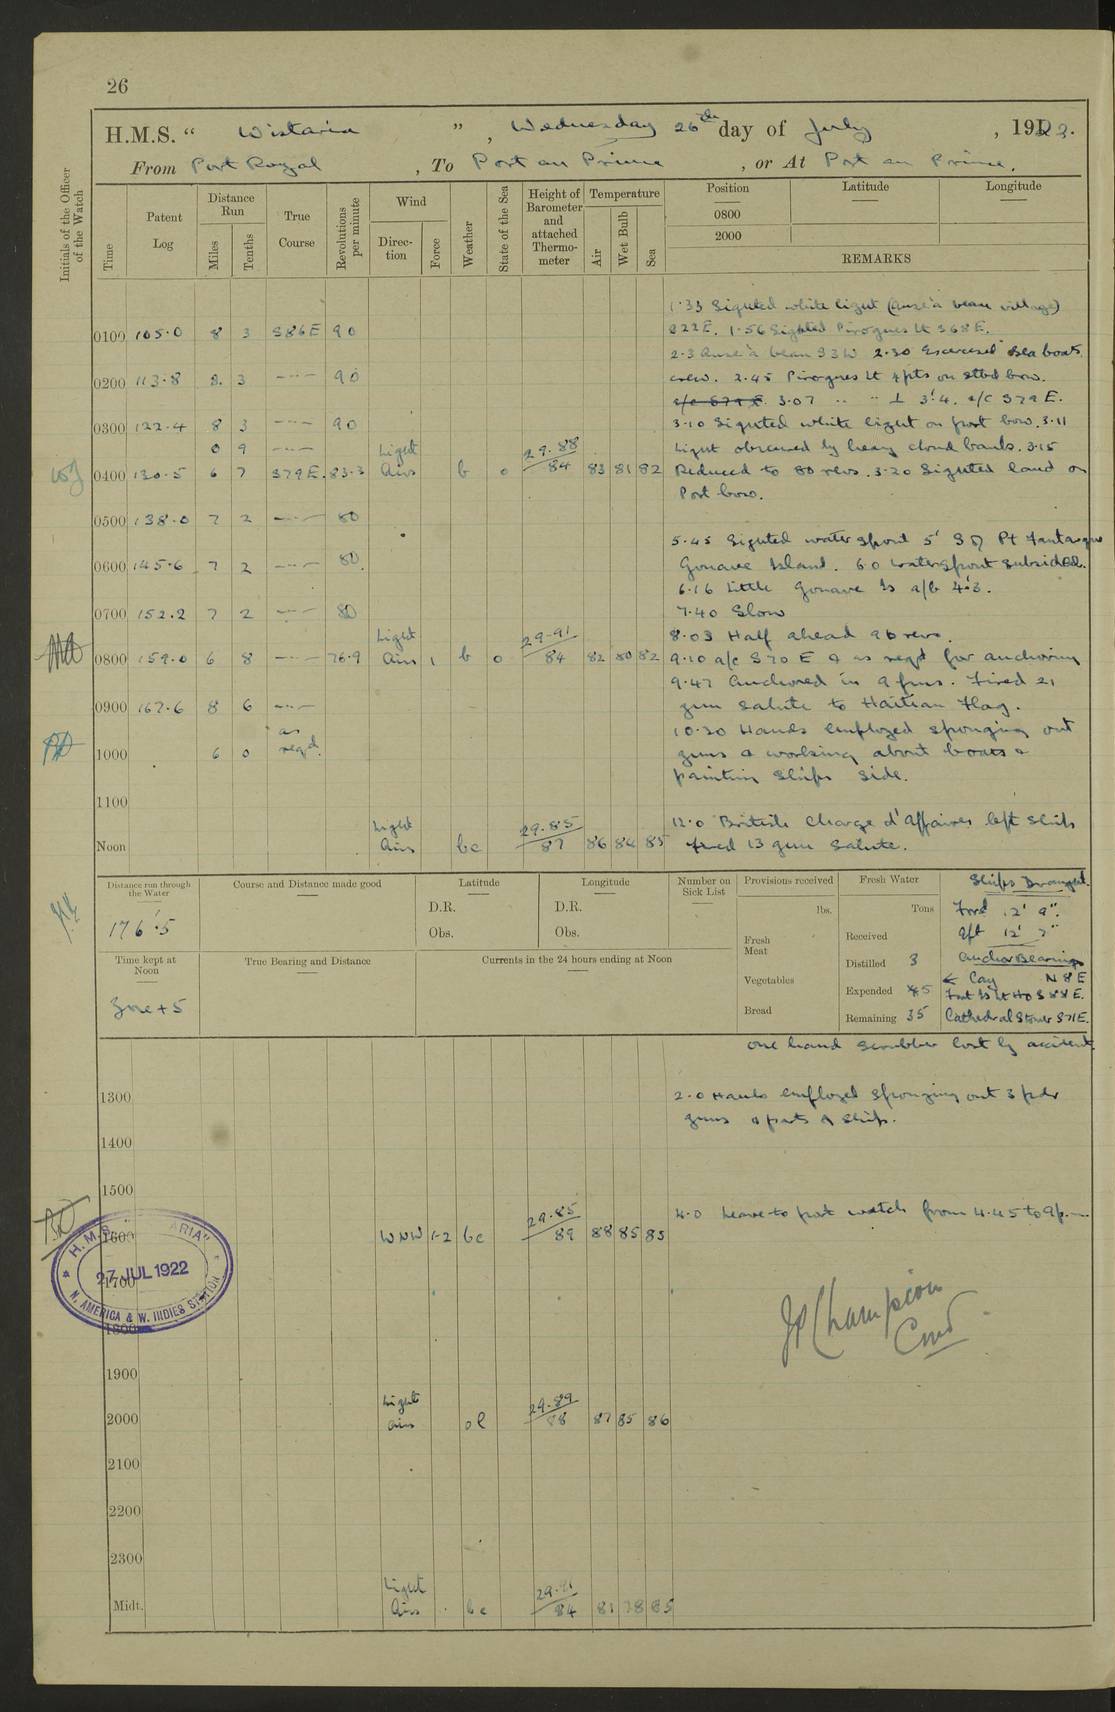 26
H.M.S. " Wistaria " , Wednesday 26th day of July , 1922.
From Port Royal , To Port au Prince , or At Port au Prince.
Initials of the Officer of the Watch
Time
Patent Log
Distance Run
Miles
Tenths
True Course
Revolutions per minute
Wind
Direction
Force
Weather
State of the Sea
Height of Barometer and attached Thermometer
Temperature
Air
Wet Bulb
Sea
Position
0800
2000
Latitude
Longitude
REMARKS
1·33 Sighted white light (Anse à beau village)
S22E. 1·56 Sighted Pirogues Lt S68E.
0100 105·0 8 3 S86E 90
2·3 Anse à beau S3W 2·30 Exercised Sea boats
0200 113·8 8 3 —··— 90
crew. 2·45 Pirogues Lt 4pts on Stbd bow.
a/c S79E. 3·07 ·· ·· ⊥ 3'·4. a/c S79E.
0300 122·4 8 3 —··— 90
3·10 Sighted white light on port bow. 3·11
0 9 —··— Light
Light obscured by heavy cloud banks. 3·15
0400 130·5 6 7 S79E. 83·3 Airs b 0 29·88/84 83 81 82
Reduced to 80 revs. 3·20 Sighted land on
Port bow.
0500 138·0 7 2 —··— 80
5·45 Sighted water spout 5' S of Pt Fantasque
0600 145·6 7 2 —··— 80
Gonave Island. 6·0 waterspout subsided.
6·16 Little Gonave Is a/b 4'·3.
0700 152·2 7 2 —··— 80
7·40 Slow
8·03 Half ahead 90 revs.
0800 159·0 6 8 —··— 76·9 Light Airs 1 b 0 29·91/84 82 80 82
9·10 a/c S70E & as reqd for anchoring
9·47 Anchored in 9 fms. Fired 21
0900 167·6 8 6 —··—
gun Salute to Haitian Flag.
1000 6 0 as reqd.
10·30 Hands employed sponging out
guns & working about boats &
painting Ships side.
1100
Noon Light Airs bc 29·85/87 86 84 85
12·0 British Charge d'Affaires left Ship
fired 13 gun Salute.
Distance run through the Water
176'·5
Course and Distance made good
Latitude
D.R.
Obs.
Longitude
D.R.
Obs.
Number on Sick List
Provisions received
lbs.
Fresh Meat
Vegetables
Bread
Fresh Water
Tons
Received
Distilled 3
Expended 5
Remaining 35
Ships Draught
Ford 12' 9".
Aft 12' 7"
Anchor Bearings
← Cay N8E
Fort Is Lt Ho S88E.
Cathedral Stower S71E.
Time kept at Noon
Zone + 5
True Bearing and Distance
Currents in the 24 hours ending at Noon
One hand scrubber lost by accident.
1300
2·0 Hands employed sponging out 3 pdr
guns & parts of Ship.
1400
1500
4·0 Leave to port watch from 4·45 to 9 p.m.
1600 WNW 1-2 bc 29·85/89 88 85 85
H.M.S. "WISTARIA"
27 JUL 1922
N. AMERICA & W. INDIES STATION
1700
1800
JP Champion
Cmdr
1900
2000 Light Airs oL 29·89/88 87 85 86
2100
2200
2300
Midt. Light Airs bc 29·91/84 81 78 85